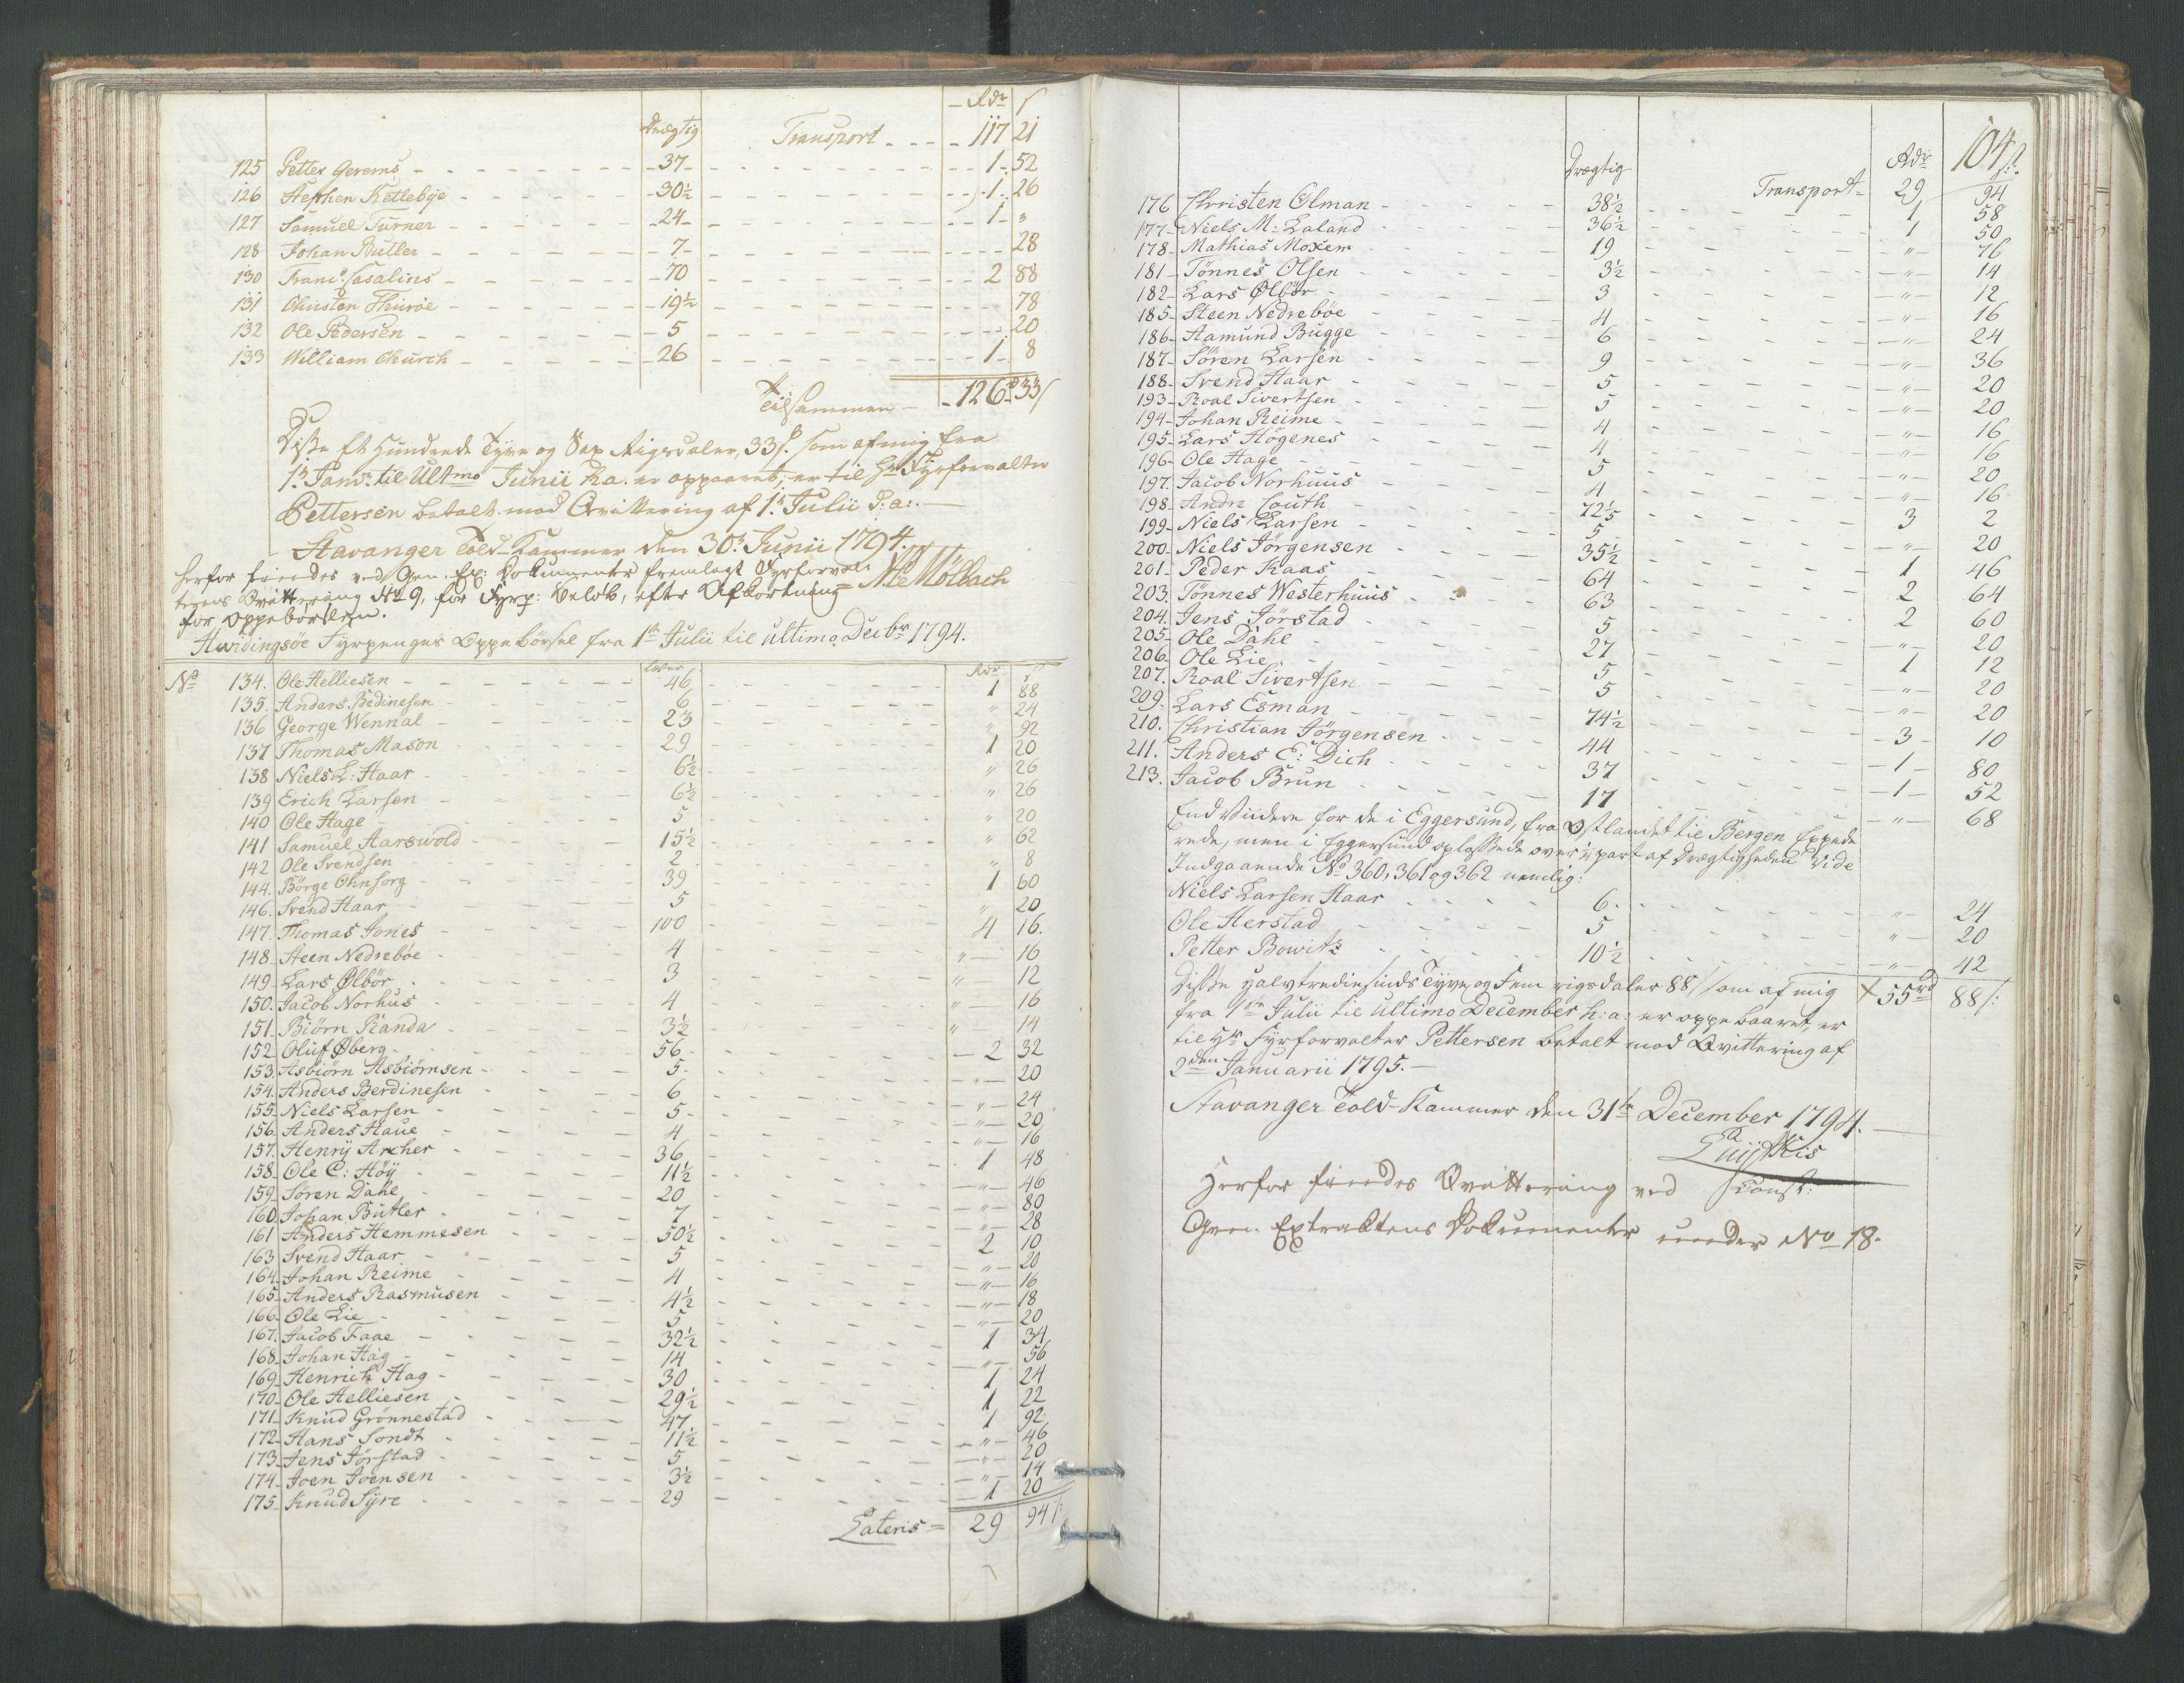 Rdr ſ
Drægtig Transport 117 21
125 Petter Gerems 37 1 52
126 Stephen Kettlebye 30½ 1 26
127 Samuel Turner 24 1 "
128 Johan Butler 7 28
130 Franc: Casalins 70 2 88
131 Christen Thuröe 19½ 78
132 Ole Pedersen 5 20
133 William Church 26 1 8
Tilsammen 126 33ſ
Disse Et Hundrede Tyve og Sex Rigsdaler, 33 ſ. som af mig fra
1te Janr: til Ultmo Junii h.a. er oppaaret, er til Hr Fyrforvalter
Pettersen betalt mod Qvittering af 1te Julii d: a:.
Stavanger Told-Kammer den 30te Junii 1794.
Herfor findes ved Gen. Ex: Dokumenter fremlagt Fyrforval-
terens Qvittering No 9, for Fyrp: Beløb, efter Afkortning
for oppebørslen. Mölbach
Hvidingsöe Fyrpenges Oppebörsel fra 1te Julii til ultimo Decbr 1794.
No Læster Rdr ſ
134. Ole Helliesen 46 1 88
135. Anders Bedinesen 6 " 24
136 George Wennal 23 " 92
137 Thomas Mason 29 1 20
138 Niels L: Haar 6½ " 26
139 Erich Larsen 6½ " 26
140 Ole Hage 5 " 20
141 Samuel Harswold 15½ " 62
142 Ole Svendsen 2 " 8
144. Börge Ohnsorg 39 1 60
146. Svend Haar 5 " 20
147. Thomas Jones 100 4 16.
148. Steen Nedreböe 4 " 16
149. Lars Ølbör 3 " 12
150. Jacob Norhus 4 " 16
151. Biörn Randa 3½ " 14
152. Oluf Øberg 56 2 32
153. Asbiörn Asbiörnsen 5 " 20
154. Anders Berdinesen 6 " 24
155. Niels Larsen 5 " 20
156. Anders Haue 4 " 16
157. Henrÿ Archer 36 1 48
158. Ole C: Höÿ 11½ " 46
159. Sören Dahl 20 " 80
160. Johan Butler 7 " 28
161 Anders Hemmesen 50½ 2 10
163 Svend Haar 5 " 20
164. Johan Reime 4 " 16
165. Anders Rasmusen 4½ " 18
166. Ole Lie 5 " 20
167. Jacob Faae 32½ 1 34
168. Johan Hag 14 " 56
169. Henrich Hag 30 1 24
170. Ole Helliesen 29½ 1 22
171. Knud Grönnestad 47 1 92
172. Hans Sondt 11½ " 46
173. Jens Jörstad 5 " 20
174. Joen Joensen 3½ " 14
175. Knud Sÿre 29 1 20
Lateris = 29 94ſ:
104
Drægtig Rdr ſ.
Transport 29 94
176 Christen Olman 38½ 1 58
177. Niels M: Laland 36½ 1 50
178. Mathias Moxem 19 " 76
181. Tönnes Olsen 3½ " 14
182. Lars Ølbör 3 " 12
185. Steen Nedreböe 4 " 16
186. Aamund Bugge 6 " 24
187. Sören Larsen 9 " 36
188. Svend Haar 5 " 20
193. Roal Sivertsen 5 " 20
194. Johan Reime 4 " 16
195. Lars Högenes 4 " 16
196. Ole Hage 5 " 20
197. Jacob Norhuus 4 " 16
198. Andre Couth 72½ 3 2
199. Niels Larsen 5 " 20
200. Niels Jörgensen 35½ 1 46
201. Peder Kaas 64 2 64
203. Tönnes Westerhuus 63 2 60
204. Jens Jörstad 5 " 20
205. Ole Dahl 27 1 12
206. Ole Lie 5 " 20
207. Roal Sivertsen 5 " 20
209. Lars Esman 74½ 3 10
210. Christian Jörgensen 44 1 80
211. Anders E: Dich 37 1 52
213. Jacob Brun 17 " 68
End Viidere for de i Eggersund, fra Østlandet til Bergen Expede
rede, men i Eggersund oplossede over ½ part af Drægtigheden Vide
Indgaaende No 360, 361 og 362 nemlig:
Niels Larsen Haar 6. " 24
Ole Herstad 5 " 20
Petter Bowitz 10½ " 42
Disse Halvtrediesinds Tyve og Fem rigsdaler 88ſ som af mig 55rd 88ſ:
fra 1te Julii til Ultimo December h: a: er oppebaaret er
til Hr Fyrforvalter Pettersen betalt mod Qvittering af
2den Januarii 1795.
Stavanger Told-Kammer den 31te December 1794.
Const:
Herfor findes Qvittering ved
Gen. Extraktens Dokumenter under No 18.